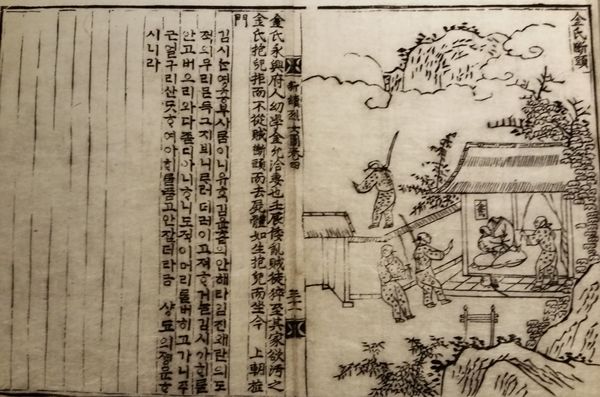 金氏斷頭
新續烈女圖卷四
金氏永興府人幼學金允洽妻也壬辰倭亂賊徒猝至其家欲汚之
金氏抱兒拒而不從賊斷頭而去屍體如生抱兒而坐今 上朝旌
門
김시ᄂᆞᆫ영흥부사ᄅᆞᆷ이니유ᄒᆞᆨ김윤흡의안해라임진왜란의도
적의무리믄득그지븨니르러더러이고져ᄒᆞ거ᄂᆞᆯ김시가ᄒᆡᄅᆞᆯ
안고버으리와다졷디아니ᄒᆞ니도적이머리ᄅᆞᆯ버히고가니주
근얼구리산ᄃᆞᆺᄒᆞ여아ᄒᆡᄅᆞᆯ품고안잣더라금 샹됴의졍문ᄒᆞ
시니라